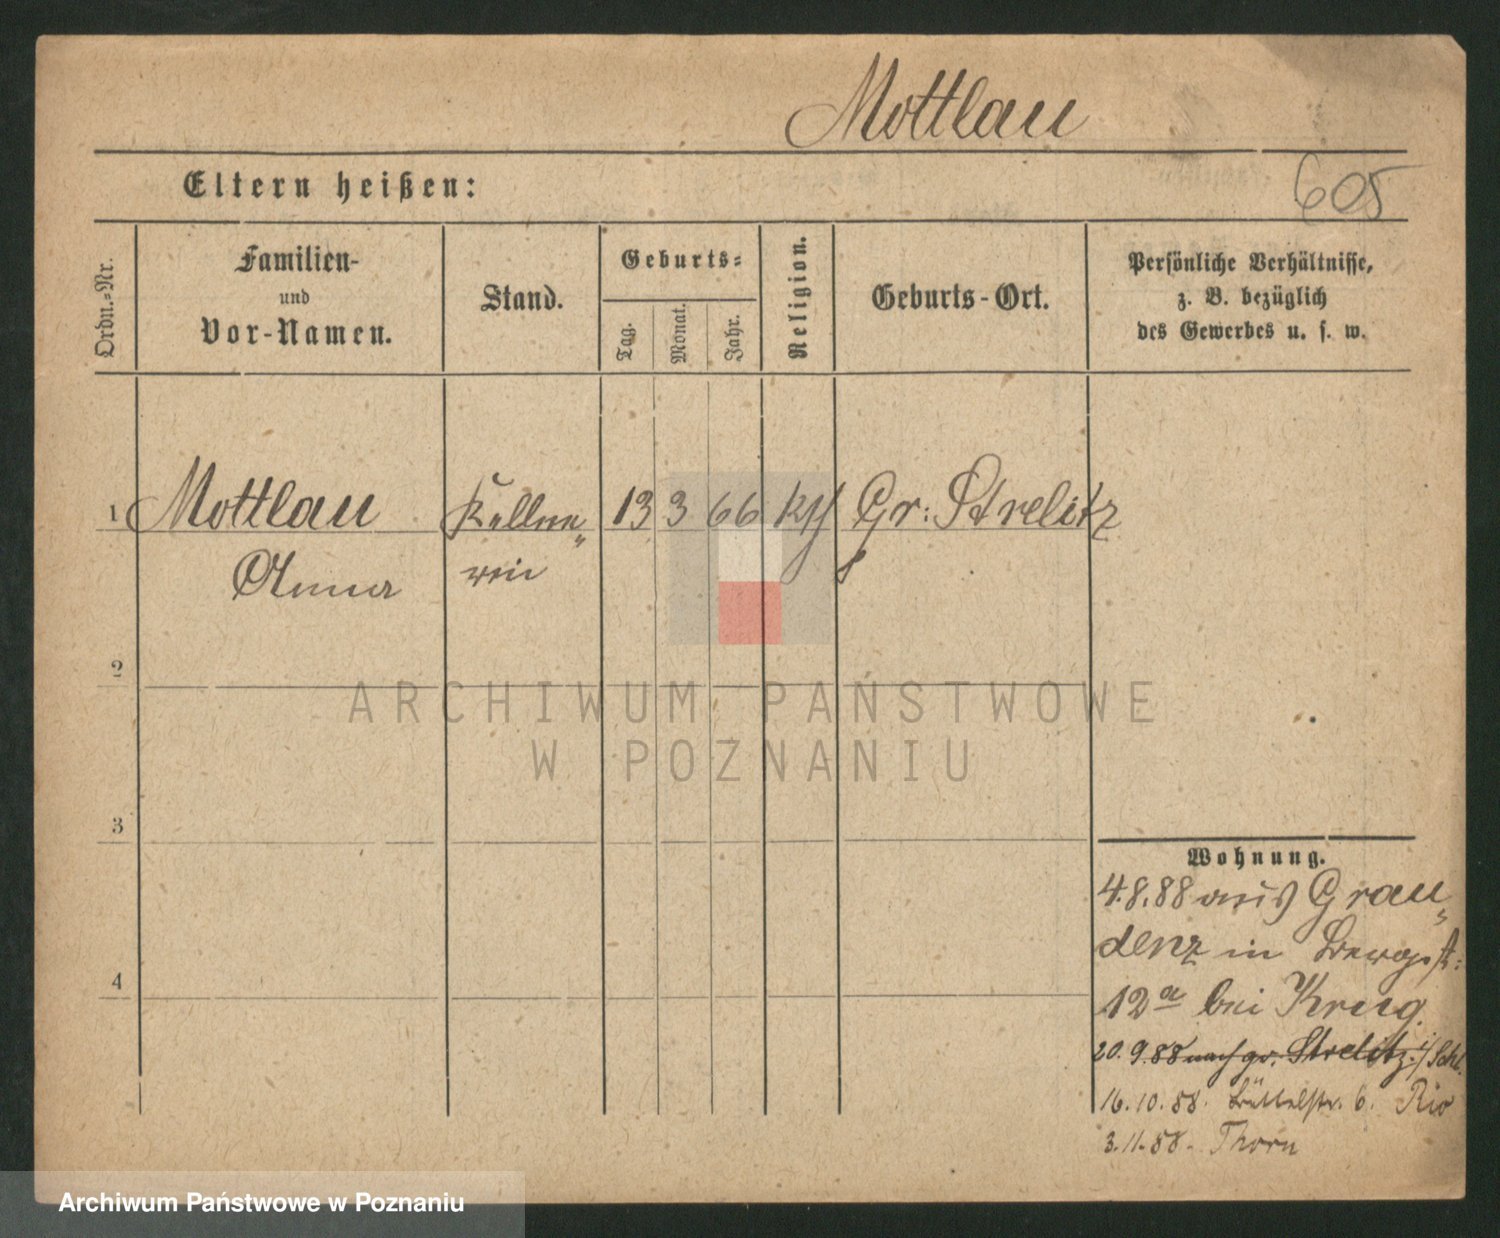 Mottlau
Eltern heißen:
605
Ordn.-Nr.
Familien-
und
Vor-Namen.
Stand.
Geburts-
Tag.
Monat.
Jahr.
Religion.
Geburts-Ort.
Persönliche Verhältnisse,
z. B. bezüglich
des Gewerbes u. s. w.
1 Mottlau Kellne„ 13 3 66 Gr: Strelitz
Anna rin
2
ARCHIWUM PAŃSTWOWE
W POZNANIU
3
Wohnung.
4.8.88 aus Grau„
denz in Bergstr:
4
12a bei Krug.
20.9.88 nach gr. Strelitz i/Schl.
16.10.88. Büttelstr. 6.
3.11.88. Thorn
Archiwum Państwowe w Poznaniu